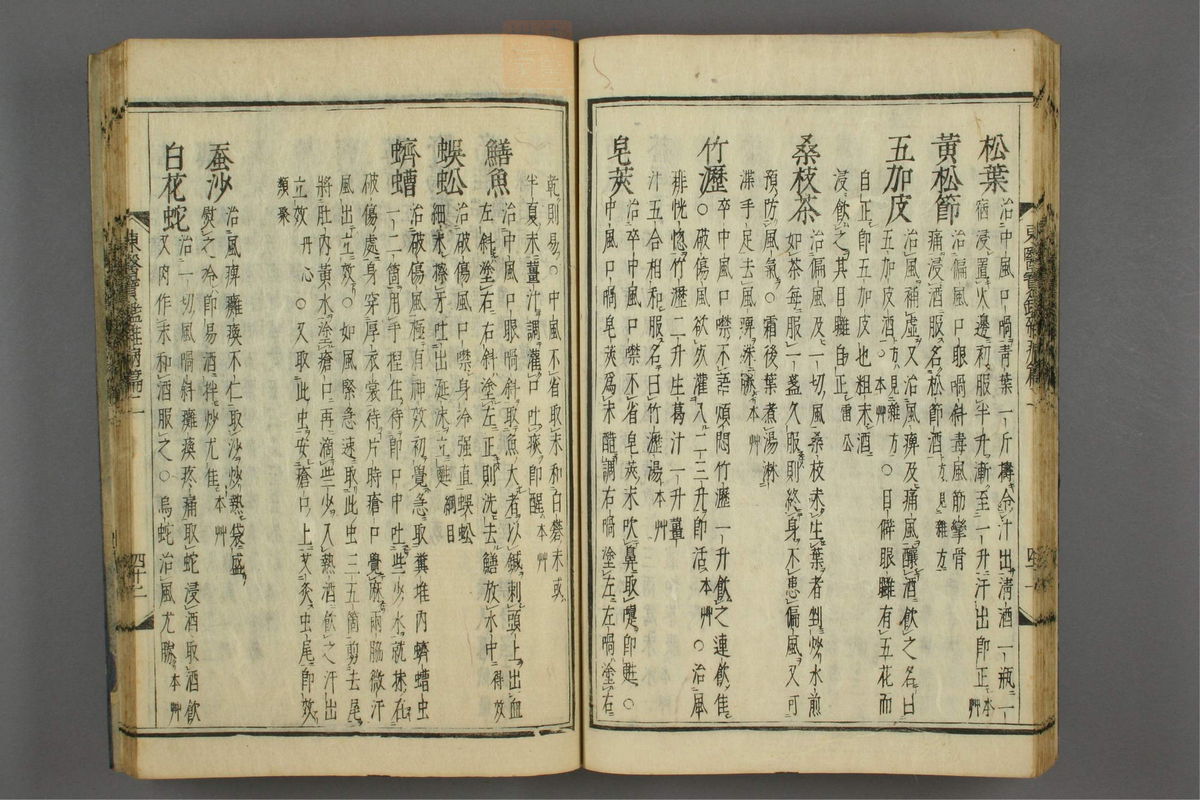 松葉治中風口喎青葉一斤擣令汁出淸酒一瓶一
宿浸置火邊初服半升漸至一升汗出卽正本艸
黃松節治偏風口眼喎斜毒風筋攣骨
痛浸酒服名松節酒方見雜方
五加皮治風補虛又治風痺及痛風釀酒飮之名曰
五加皮酒方見雜方○本艸○目僻眼䧳有五花而
自正卽五加皮也粗末酒
浸飮之其目䧳自正雷公
桑枝茶治偏風及一切風桑枝未生葉者剉炒水煎
如茶每服一盞久服則終身不患偏風又可
預防風氣○霜後葉煮湯淋
渫手足去風痺殊勝本艸
竹瀝卒中風口噤不語煩悶竹瀝一升飮之連飮佳
○破傷風欲死灌入二三升卽活本艸○治風
痱恍惚竹瀝二升生葛汁一升薑
汁五合相和服名曰竹瀝湯本艸
皂莢治卒中風口噤不省皂莢末吹鼻取嚔卽甦○
中風口喎皂莢爲末醋調右喎塗左左喎塗右
東醫寶鑑雜病篇二
乾則易○中風不省取末和白礬末或
半夏末薑汁調灌口吐痰卽醒本艸
鱔魚治中風口眼喎斜取魚大者以鍼刺頭上出血
左斜塗右右斜塗左正則洗去鱔放水中得效
蜈蚣治破傷風口噤身冷强直蜈蚣
細末擦牙吐出涎沫立甦綱目
蠐螬治破傷風極有神效初覺急取糞堆內蠐螬虫
一二箇用手揑住待卽口中吐些少水就抹在
破傷處身穿厚衣裳待片時瘡口覺麻兩脇微汗
風出立效○如風緊急速取此虫三五箇剪去尾
將肚內黃水塗瘡口再滴些少入熱酒飮之汗出
立效丹心○又取此虫安瘡口上艾灸虫尾卽效
類聚
蚕沙治風痺癱瘓不仁取沙炒熱袋盛
熨之冷卽易酒拌炒尤佳本艸
白花蛇治一切風喎斜癱瘓疼痛取蛇浸酒取酒飮
又肉作末和酒服之○烏蛇治風尤勝本艸
東醫寶鑑雜病篇二
四十二